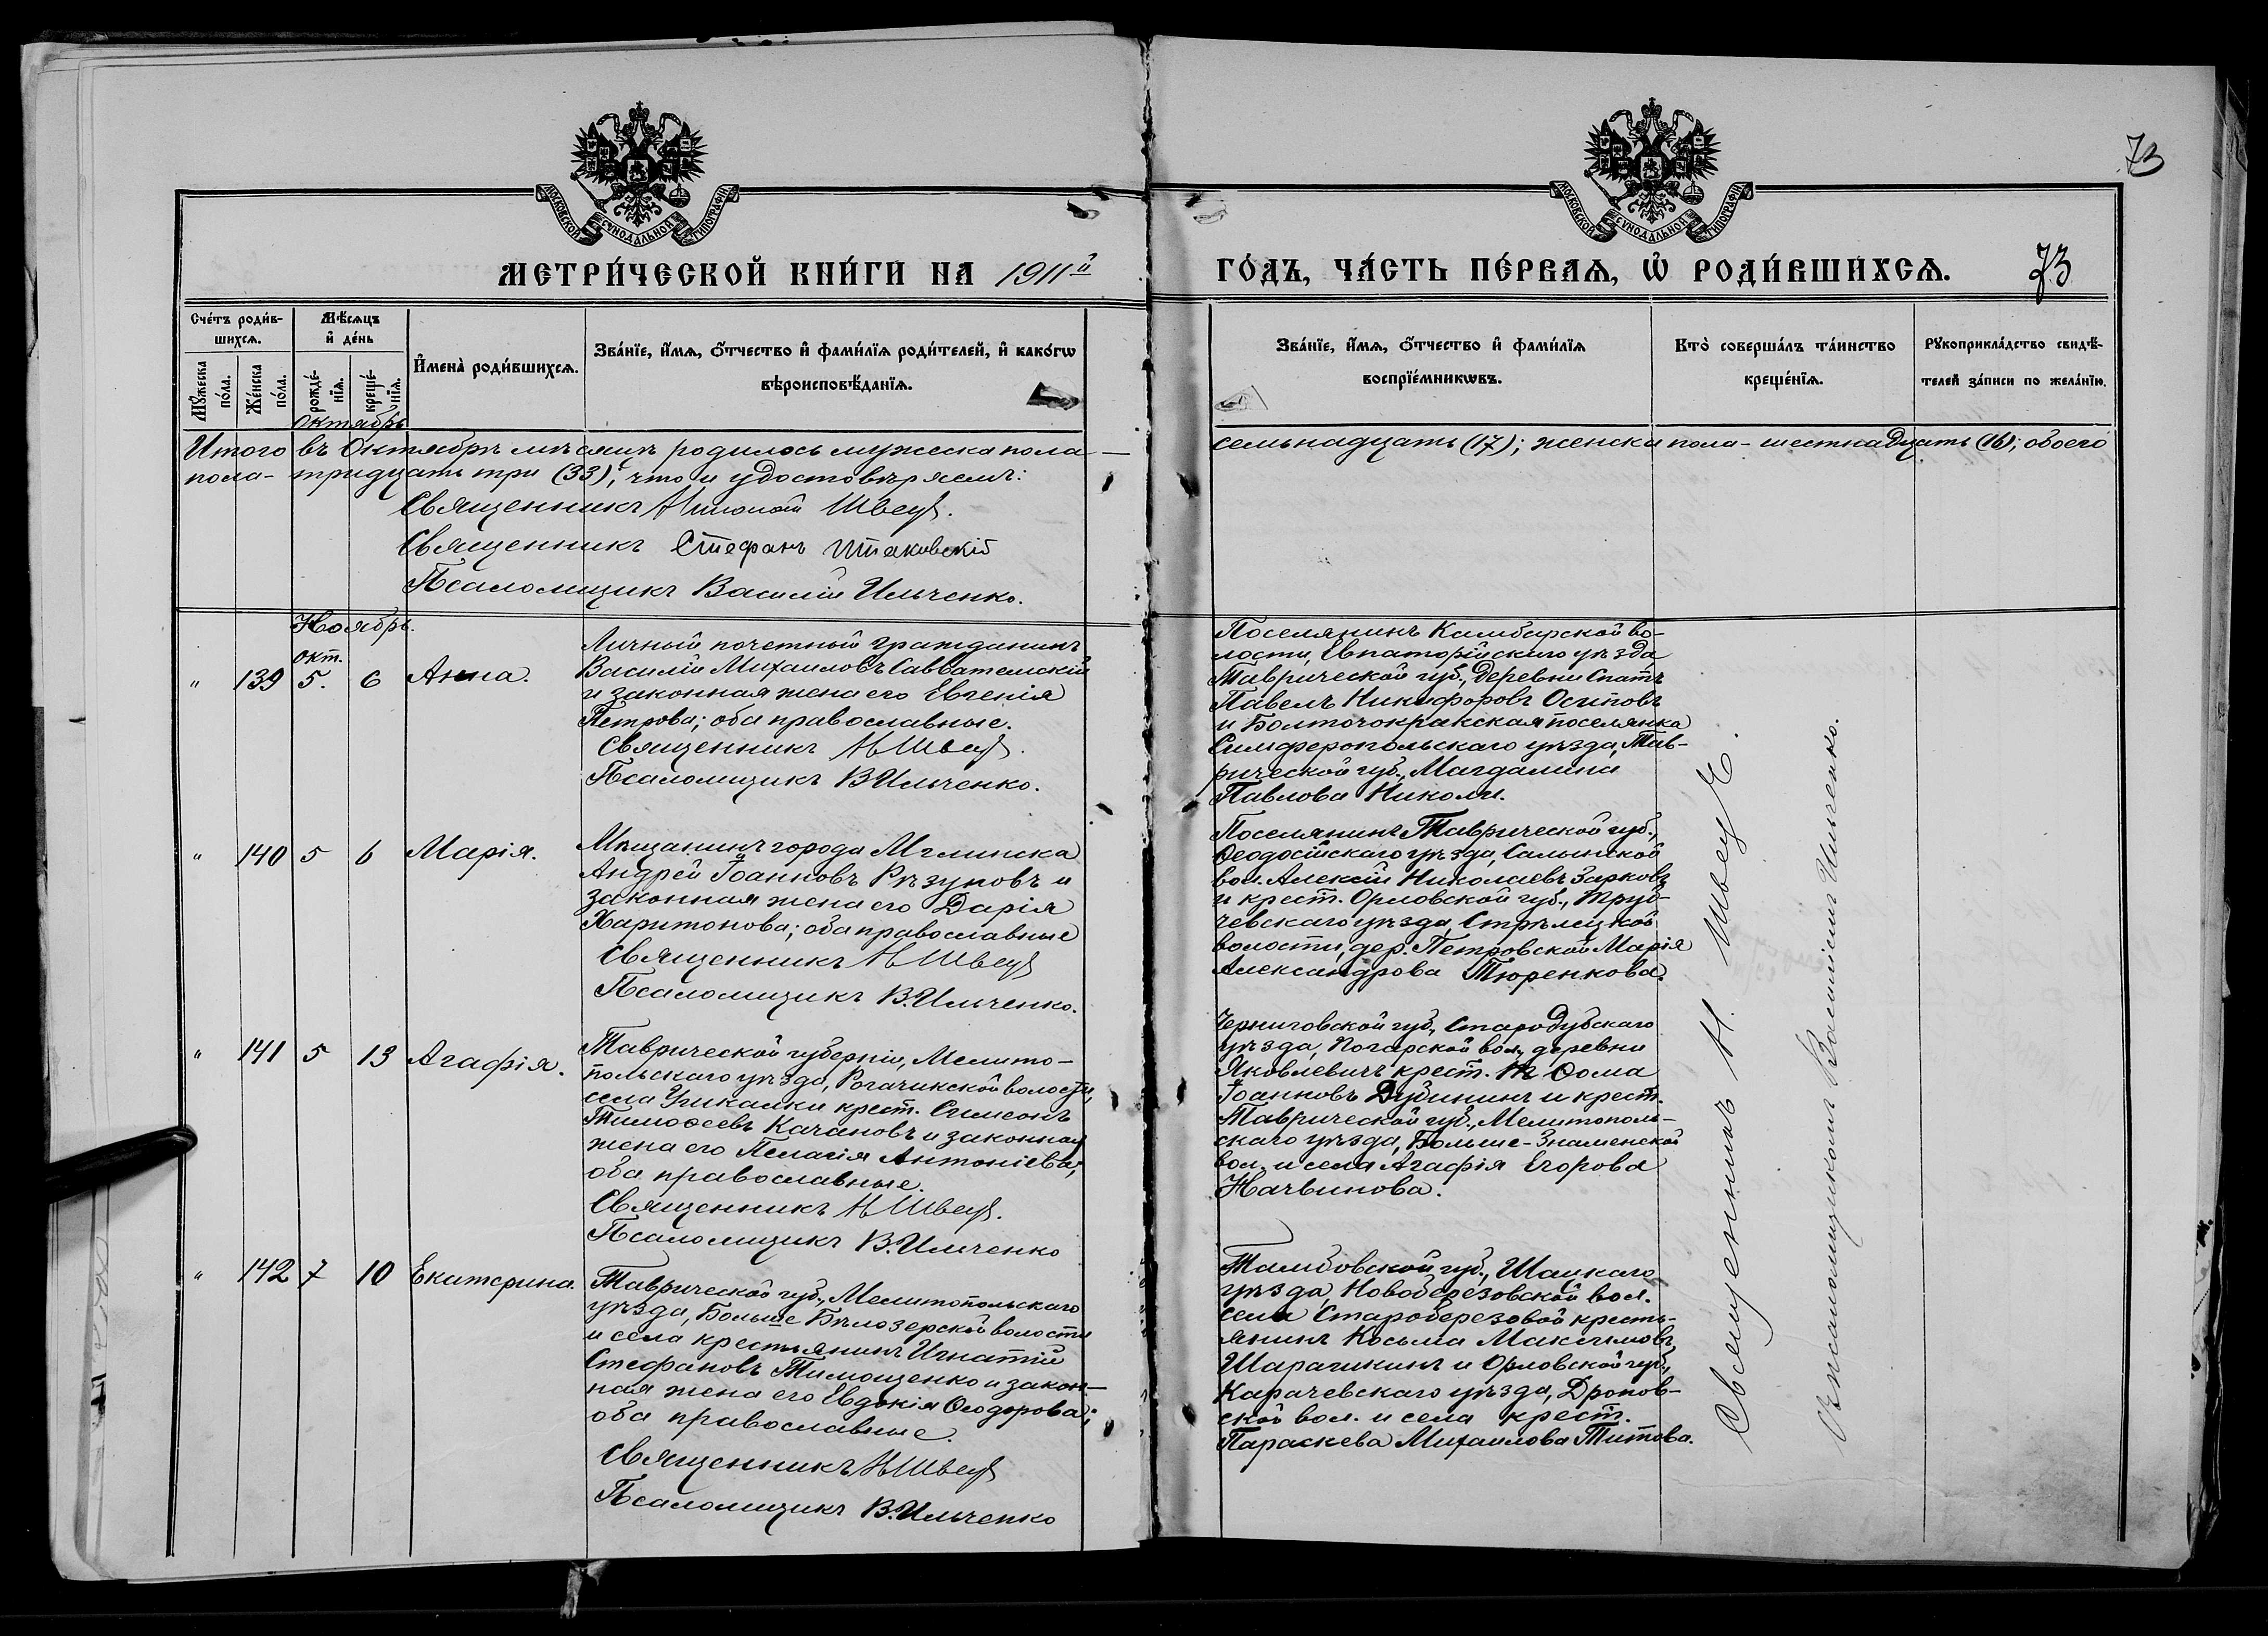 73
МОСКОВСКОЙ СѴНОДАЛЬНОЙ ТИПОГРАФІИ
МОСКОВСКОЙ СѴНОДАЛЬНОЙ ТИПОГРАФІИ
МЕТРИ́ЧЕСКОЙ КНИ́ГИ НА 1911й
ГО́ДЪ, ЧА́СТЬ ПЕ́РВАѦ, Ѡ҆ РОДИ́ВШИХСѦ.
73
Сче́тъ роди́в-
шихсѧ.
Мꙋ́жеска по́ла.
Же́нска по́ла.
Мѣ́сѧцъ
и҆ де́нь
рожде́-
нїѧ.
креще́-
нїѧ.
И҆мена̀ роди́вшихсѧ.
Зва́нїе, и҆́мѧ, ѻ҆́тчество и҆ фами́лїѧ роди́телей, и҆ како́гѡ
вѣроисповѣ́данїѧ.
Зва́нїе, и҆́мѧ, ѻ҆́тчество и҆ фами́лїѧ
воспрїе́мникѡвъ.
Кто̀ соверша́лъ та́инство
креще́нїѧ.
Рꙋкоприкла́дство свидѣ́-
телей за́писи по жела́нїю.
Октябрь
Итого въ Октябрѣ мѣсяцѣ родилось мужеска пола —
семьнадцать (17); женска пола - шестнадцать (16); обоего
пола - тридцать три (33), что и удостовѣряемъ:
Священникъ Николай Швецъ.
Священникъ Стефанъ
Псаломщикъ Василій Ильченко.
Ноябрь.
окт.
" 139 5. 6 Анна.
Личный почетный гражданинъ
Василій Михаиловъ Савватемскій
и законная жена его Евгенія
Петрова; оба православные.
Священникъ Н Швецъ.
Псаломщикъ В Ильченко.
Поселянинъ Камбарской во-
лости, Евпаторійскаго уѣзда
Таврической губ., деревни Спатъ
Павелъ Никифоровъ Осиповъ
и Болточокракская поселянка
Симферопольскаго уѣзда, Тав-
рической губ., Магдалина
Павлова Николи.
" 140 5 6 Марія.
Мѣщанинъ города Мглинска
Андрей Іоанновъ Рѣзуновъ и
законная жена его Дарія
Харитонова; оба православные
Священникъ Н Швецъ
Псаломщикъ В. Ильченко.
Поселянинъ Таврической губ.,
Ѳеодосійскаго уѣзда, Салынской
вол. Алексій Николаевъ Зарковъ
и крест. Орловской губ., Труб-
чевскаго уѣзда, Стрѣлецкой
волости, дер. Петровской Марія
Александрова Тюренкова.
" 141 5 13 Агафія.
Таврической губерніи, Мелито-
польскаго уѣзда, Рогачикской волости,
села Ушкалки крест. Симеонъ
Тимоѳеевъ Качановъ и законная
жена его Пелагія Антоніева;
оба православные.
Священникъ Н Швецъ.
Псаломщикъ В. Ильченко
Черниговской губ., Стародубскаго
уѣзда, Погарской вол., деревни
Яковлевичъ крест. Ѳома
Іоанновъ Дубининъ и крест.
Таврической губ., Мелитополь-
скаго уѣзда, Больше-Знаменской
вол. и села Агафія Егорова
Начвинова.
" 142 7 10 Екатерина.
Таврической губ., Мелитопольскаго
уѣзда, Больше Бѣлозерской волости
и села крестьянинъ Игнатій
Стефановъ Тимощенко и закон-
ная жена его Евдокія Ѳеодорова;
оба православные.
Священникъ Н Швецъ
Псаломщикъ В. Ильченко
Тамбовской губ., Шацкаго
уѣзда, Новоберезовской вол.
села Староберезовой кресть-
янинъ Косьма Максимовъ
Шарашкинъ и Орловской губ.,
Карачевскаго уѣзда, Дронов-
ской вол. и села крест.
Параскева Михаилова Титова.
Священникъ Н. Швецъ.
съ псаломщикомъ Василіемъ Ильченко.